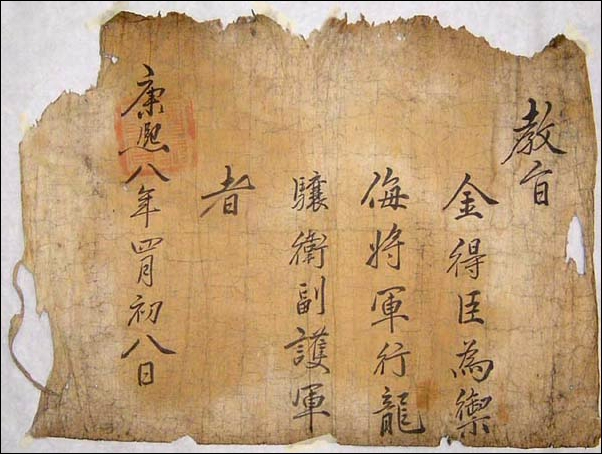 教旨
金得臣為禦
侮將軍行龍
驤衛副護軍
者
康熙八年四月初八日